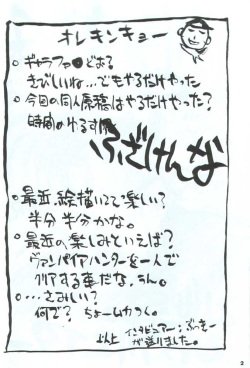 オレキンキョー
○ ギャラファ●どお?
きびしいね…でもやるだけやった
○ 今回の同人原稿はやるだけやった?
時間のゆるす限
ふざけんな
○ 最近、絵描いてて楽しい?
半分半分かな。
○ 最近の楽しみといえば?
ヴァンパイアハンターを一人で
クリアする事だな、うん。
○ …さみしい?
何で? ちょームカつく。
以上 インタビュアー:ぶっきー
が送りました。